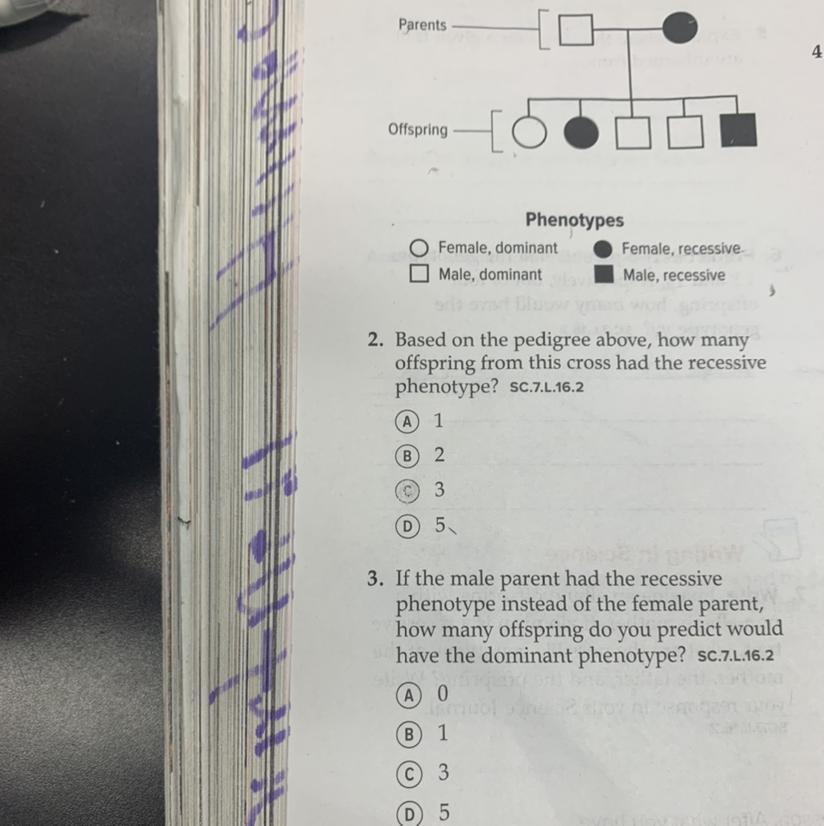 Parents
4
Offspring
Phenotypes
Female, dominant
Female, recessive
Male, dominant
Male, recessive
2. Based on the pedigree above, how many
offspring from this cross had the recessive
phenotype? SC.7.L.16.2
A 1
B 2
C 3
D 5
3. If the male parent had the recessive
phenotype instead of the female parent,
how many offspring do you predict would
have the dominant phenotype? SC.7.L.16.2
A 0
B 1
C 3
D 5